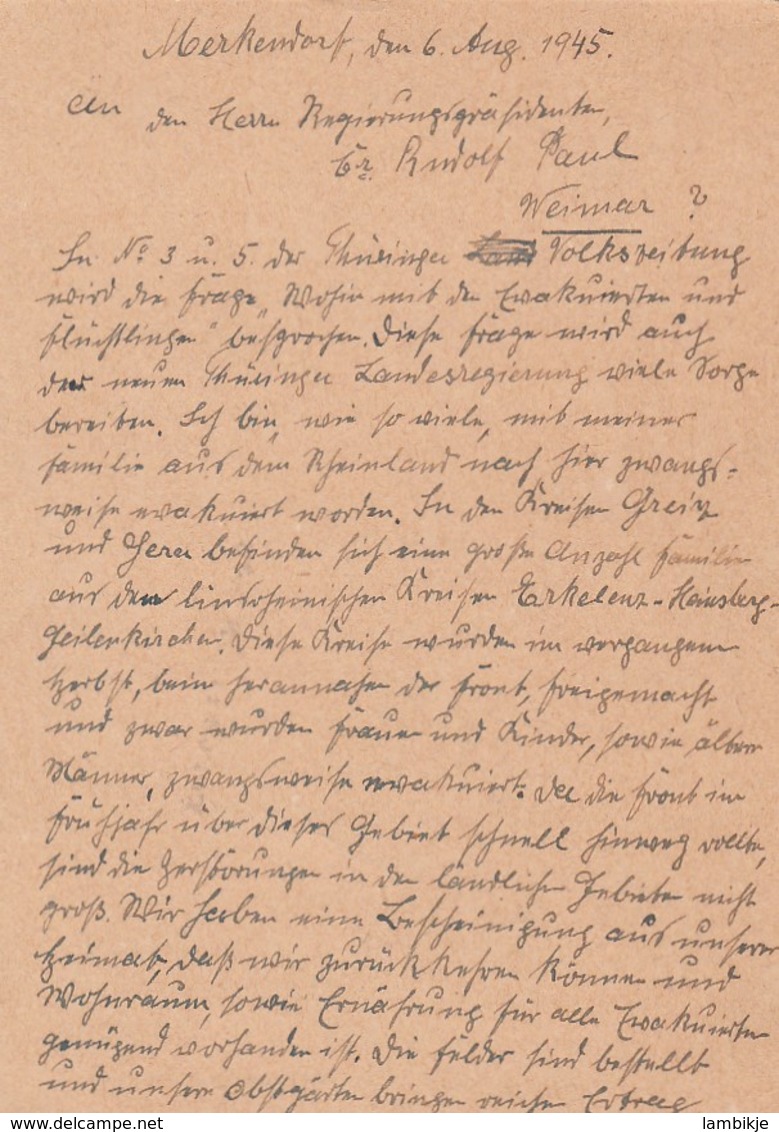 Merkendorf, den 6. Aug. 1945.
An den Herrn Regierungspräsidenten,
Dr. Rudolf Paul
Weimar ?
In No 3 u. 5. der Thüringer Volkszeitung
wird die Frage „Wohin mit den Evakuierten und
Flüchtlingen" besprochen. Diese Frage wird auch
der neuen Thüringer Landesregierung viele Sorge
bereiten. Ich bin, wie so viele, mit meiner
Familie aus dem Rheinland nach hier zwangs-
weise evakuiert worden. In den Kreisen Greiz
und Gera befinden sich eine große Anzahl Familien
aus den linksrheinischen Kreisen Erkelenz-Heinsberg-
Geilenkirchen. Diese Kreise wurden im vergangenen
Herbst, beim Herannahen der Front, freigemacht
und zwar wurden Frauen und Kinder, sowie ältere
Männer, zwangsweise evakuiert. Da die Front im
Frühjahr über dieses Gebiet schnell hinweg rollte,
sind die Zerstörungen in den ländlichen Gebieten nicht
groß. Wir haben eine Bescheinigung aus unserer
Heimat, daß wir zurückkehren können und
Wohnraum, sowie Ernährung für alle Evakuierten
genügend vorhanden ist. Die Felder sind bestellt
und unsere Obstgärten bringen reichen Ertrag
www.delcampe.net
lambikje